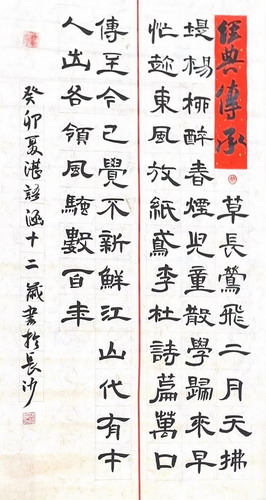 經典傳承
草長鶯飛二月天拂
堤楊柳醉春煙兒童散學歸來早
忙趁東風放紙鳶李杜詩篇萬口
傳至今已覺不新鮮江山代有才
人出各領風騷數百年
癸卯夏湛語涵十二歲書於長沙